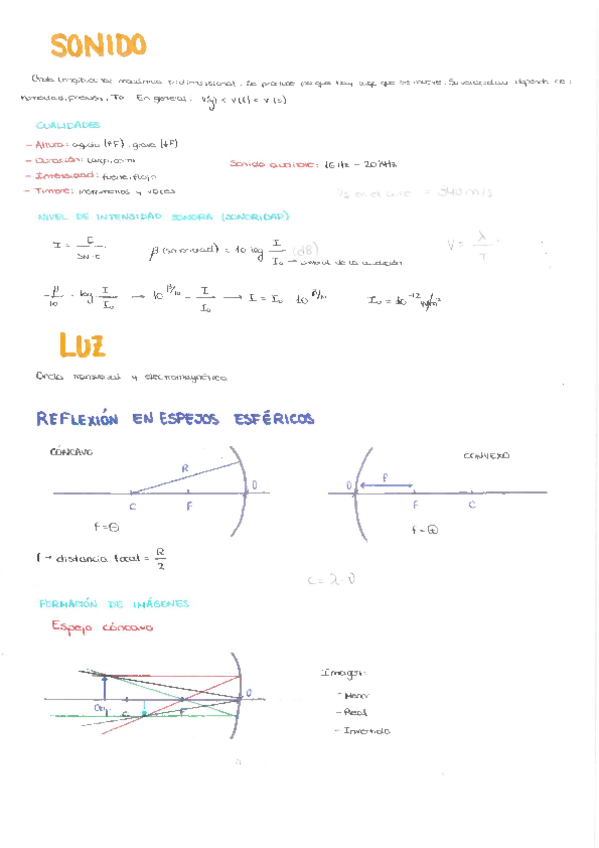 SONIDO
Onda longitudinal mecánica tridimensional. Se produce porque hay algo que se mueve. Su velocidad depende de:
humedad, presión, Tª En general: V(g) < V(l) < V(s)
CUALIDADES
- Altura: agudo (↑F), grave (↓F)
- Duración: largo, corto
Sonido audible: 16 Hz - 20 kHz
- Intensidad: fuerte, flojo
- Timbre: instrumentos y voces
en el aire = 340 m/s
NIVEL DE INTENSIDAD SONORA (SONORIDAD)
I = E / S·t
β (sonoridad) = 10 log I / I₀ (dB)
→ umbral de la audición
V = λ / T
β / 10 = log I / I₀ → 10^β/10 = I / I₀ → I = I₀ 10^β/10
I₀ = 10⁻¹² W/m²
LUZ
Onda transversal y electromagnética
REFLEXIÓN EN ESPEJOS ESFÉRICOS
CÓNCAVO
CONVEXO
R
O
C
F
f = ⊖
O
F
F
C
f = ⊕
f → distancia focal = R / 2
c = λ·υ
FORMACIÓN DE IMÁGENES
Espejo cóncavo
Obj
C
F
O
Imagen:
- Menor
- Real
- Invertida